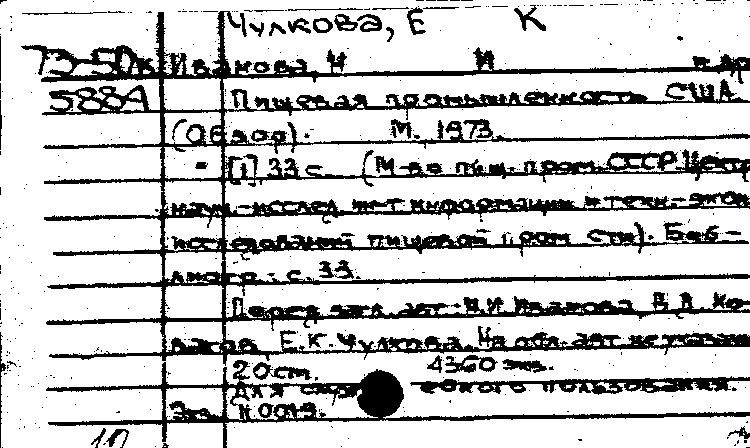 Чулкова, Е К
73-50к Иванова, Н И и др
5884 Пищевая промышленность США.
(Обзор). М. 1973.
- [1] 33 с. (М-во пищ. пром. СССР. Центр.
науч.-исслед ин-т информации и техн.-экон
исследований пищевой пром сти). Биб-
лиогр.: с. 33.
Перед загл. авт.: Н.И Иванова, В А Ко-
Е.К. Чулкова. На обл. авт не указаны
20 см. 4360 экз.
Для ебного пользования.
Экз. Н.0019.
10